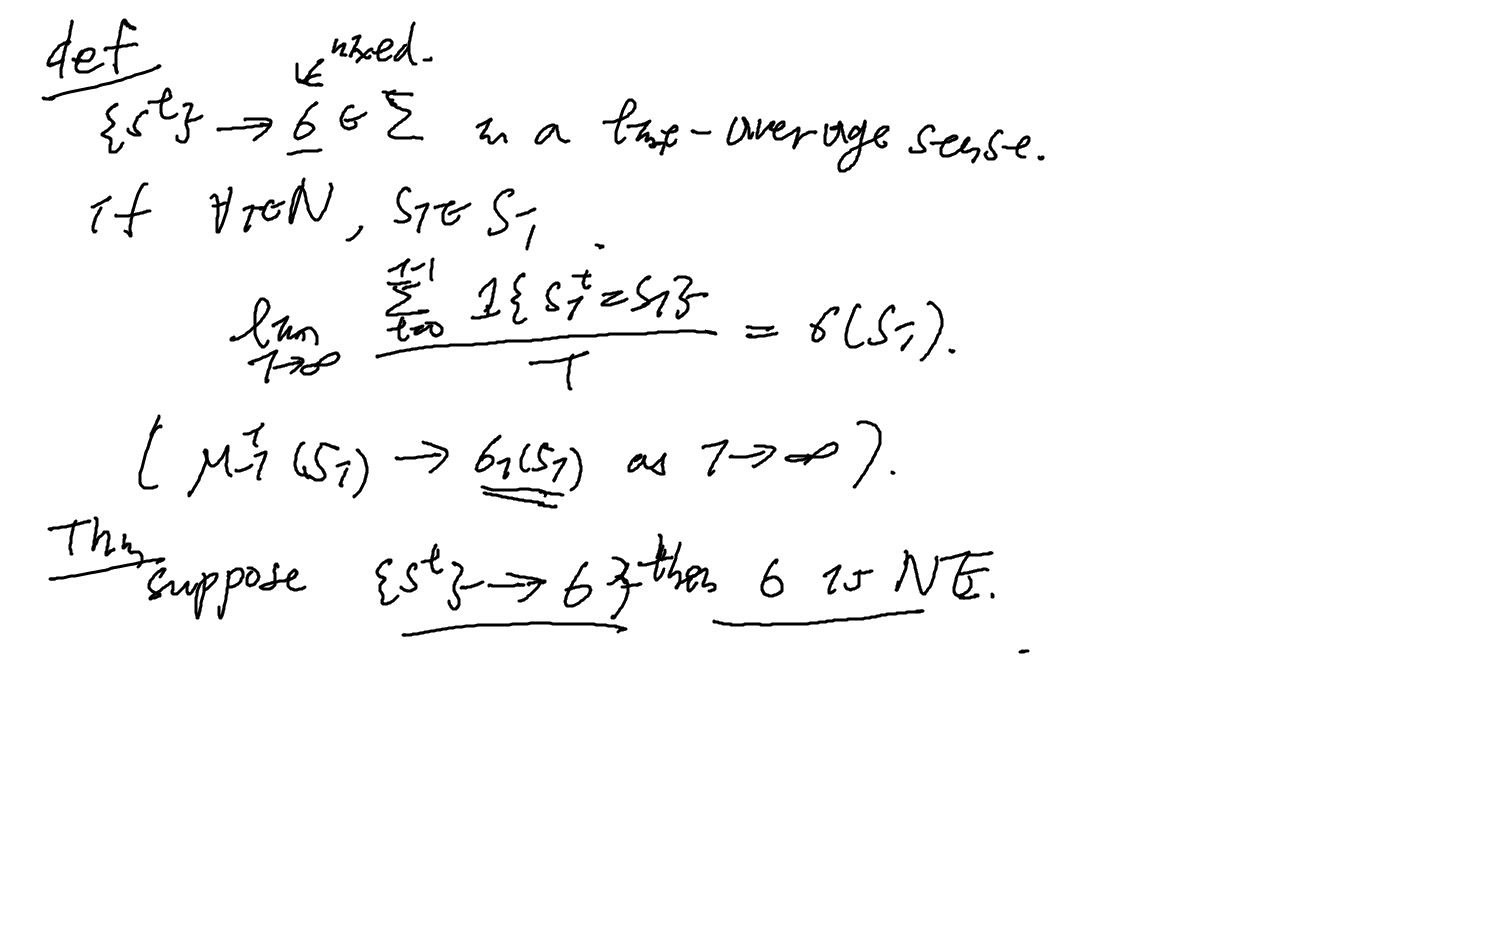 def
mixed.
{s^t} → σ ∈ Σ in a time-average sense.
if ∀i∈N, s_i ∈ S_i
lim_{T→∞} \frac{∑_{t=0}^{T-1} 1{s_i^t = s_i}}{T} = σ(s_i).
( μ_i^T (s_i) → σ_i(s_i) as T→∞ ).
Thm
suppose {s^t} → σ } then σ is NE.